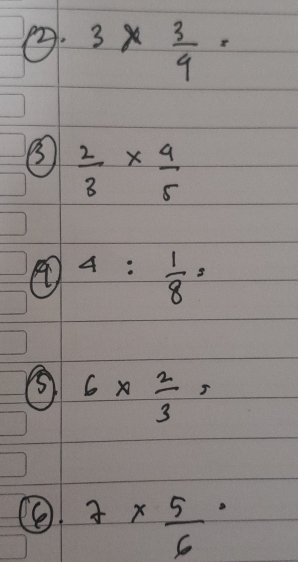 2. 3 × 3/4 =
3 2/3 × 4/5
4 4 : 1/8 =
5. 6 × 2/3 =
6. 7 × 5/6 =